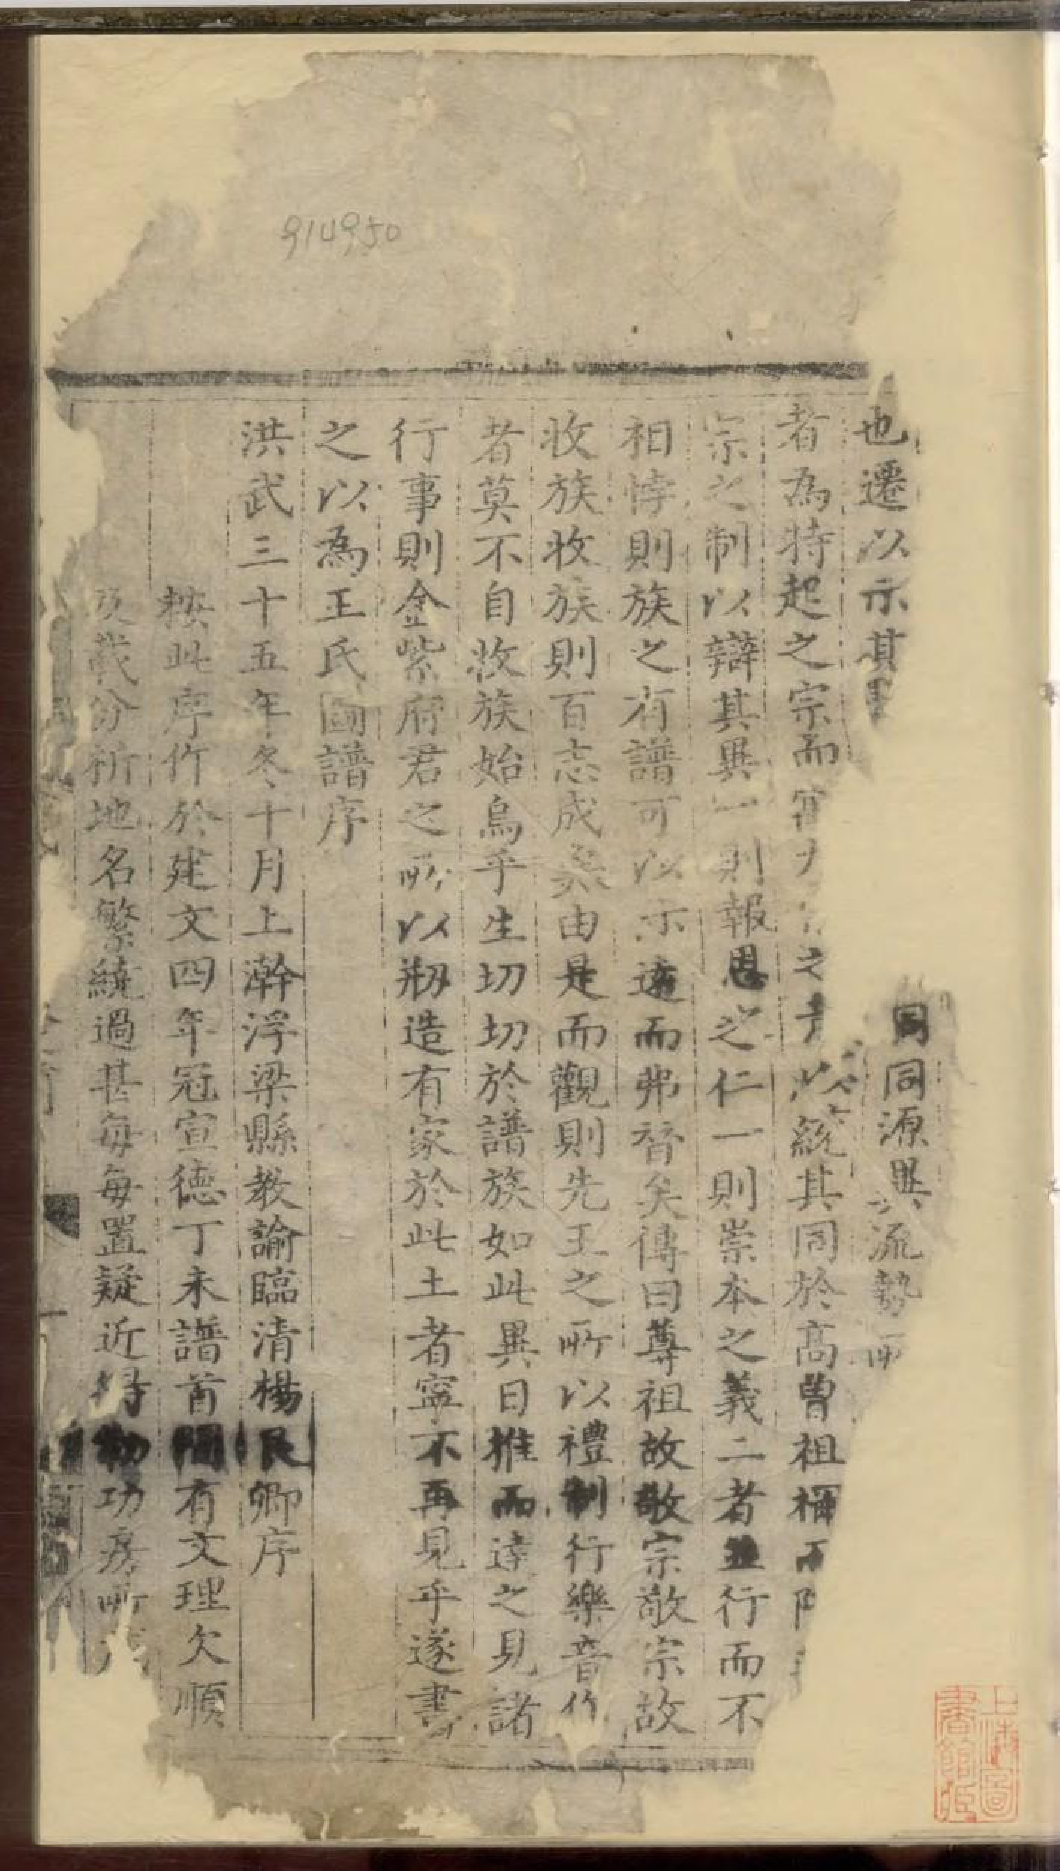 914950
也遷以示其 同同源異流勢所
者為特起之宗而 之 以統其同於高曾祖禰而
宗之制以辯其異一則報恩之仁一則崇本之義二者並行而不
相悖則族之有譜可以示遠而弗替矣傳曰尊祖故敬宗敬宗故
收族收族則百志成矣由是而觀則先王之所以禮制行樂音作
者莫不自收族始烏乎生切切於譜族如此異日推而達之見諸
行事則金紫府君之所以剏造有家於此土者寧不再見乎遂書
之以為王氏國譜序
洪武三十五年冬十月上澣浮梁縣教諭臨清楊民卿序
按此序作於建文四年冠宣德丁未譜首間有文理欠順
及載分析地名繁繞過甚每每置疑近得勑功房所
上海圖書館藏